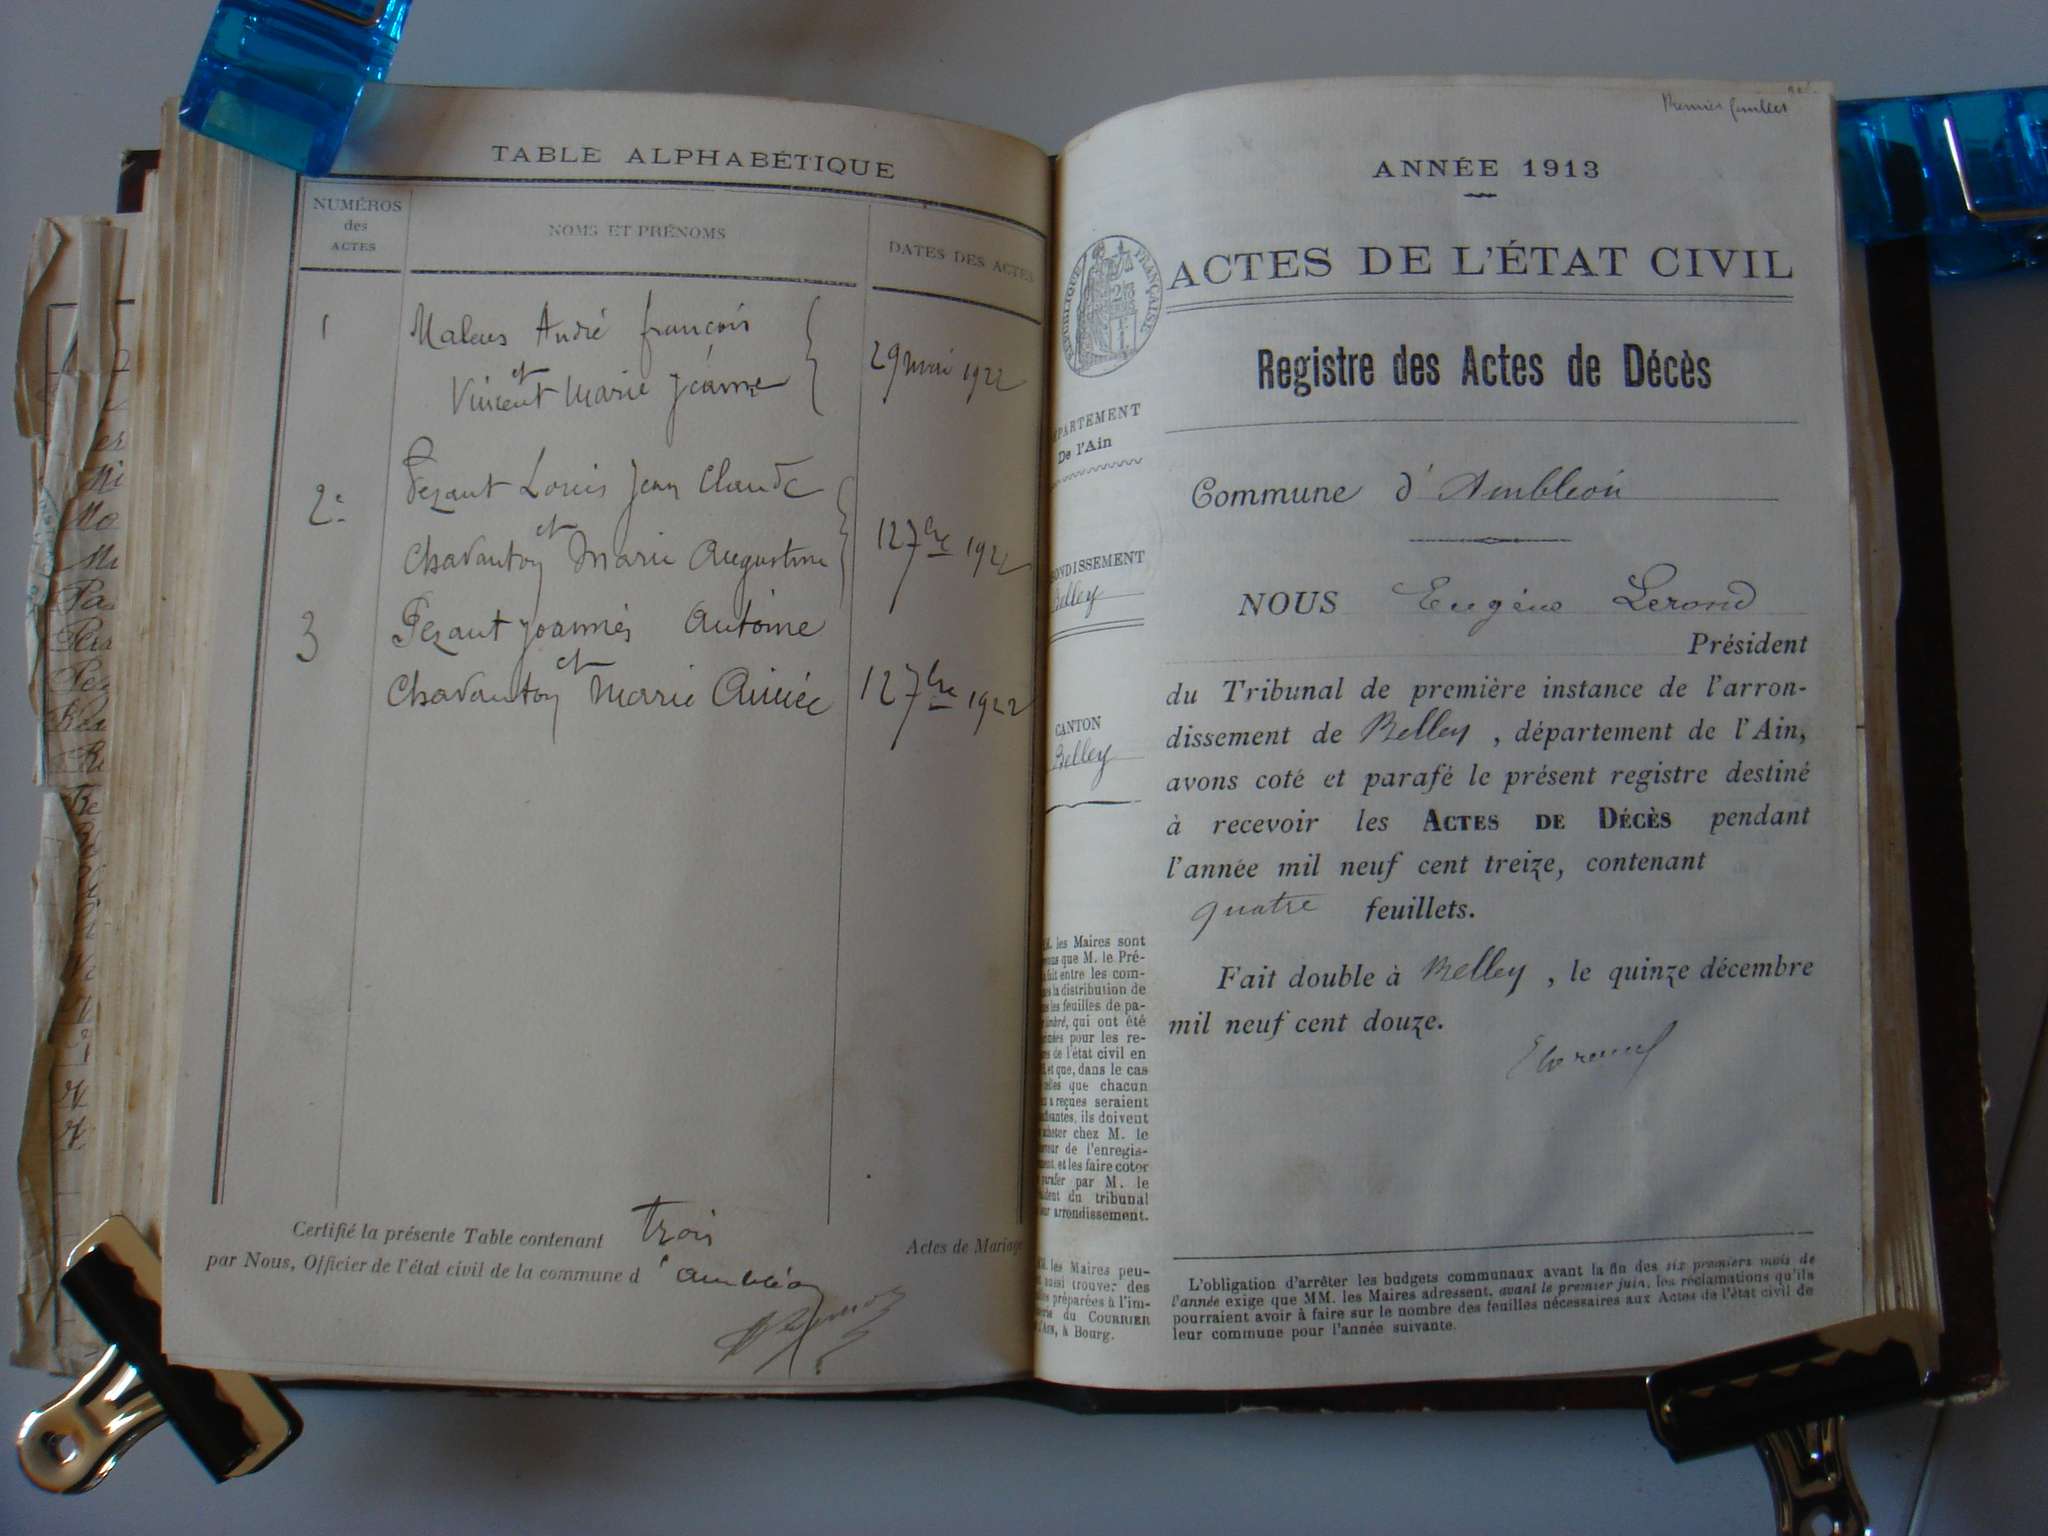 TABLE ALPHABÉTIQUE
NUMÉROS
des
ACTES
NOMS ET PRÉNOMS
DATES DES ACTES
1
André François
et
Vincent Marie Jeanne
29 mai 1922
2e
Pezant Louis Jean Claude
et
Chavanton Marie Augustine
12 7bre 1922
3
Pezant Joannès Antoine
et
Chavanton Marie Aimée
12 7bre 1922
Certifié la présente Table contenant trois Actes de Mariage
par Nous, Officier de l'état civil de la commune d'Ambléon
Premier feuillet
ANNÉE 1913
ACTES DE L'ÉTAT CIVIL
RÉPUBLIQUE FRANÇAISE
Registre des Actes de Décès
DÉPARTEMENT
De l'Ain
Commune d'Ambléon
ARRONDISSEMENT
Belley
NOUS Eugène Lerond
Président
du Tribunal de première instance de l'arron-
dissement de Belley, département de l'Ain,
CANTON
Belley
avons coté et parafé le présent registre destiné
à recevoir les ACTES DE DÉCÈS pendant
l'année mil neuf cent treize, contenant
quatre feuillets.
Fait double à Belley, le quinze décembre
mil neuf cent douze.
MM. les Maires sont
que M. le Pré-
fait entre les com-
la distribution de
les feuilles de pa-
timbré, qui ont été
pour les re-
de l'état civil en
et que, dans le cas
celles que chacun
a reçues seraient
ils doivent
acheter chez M. le
de l'enregis-
et les faire coter
parafer par M. le
du tribunal
arrondissement.
MM. les Maires peu-
aussi trouver des
préparées à l'im-
du COURRIER
à Bourg.
L'obligation d'arrêter les budgets communaux avant la fin des six premiers mois de
l'année exige que MM. les Maires adressent, avant le premier juin, les réclamations qu'ils
pourraient avoir à faire sur le nombre des feuilles nécessaires aux Actes de l'état civil de
leur commune pour l'année suivante.